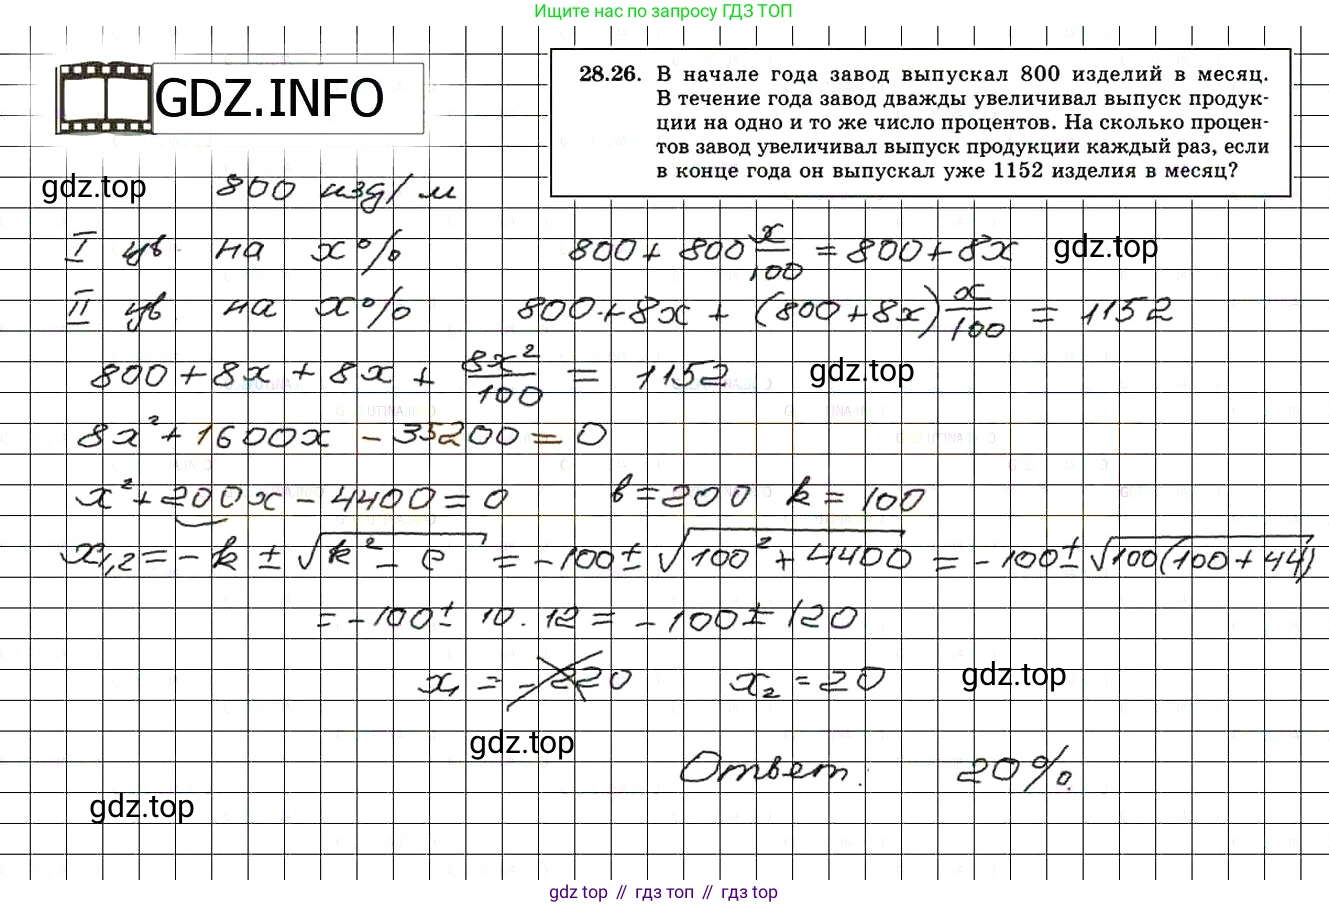 Ищите нас по запросу ГДЗ ТОП
GDZ.INFO
28.26. В начале года завод выпускал 800 изделий в месяц.
В течение года завод дважды увеличивал выпуск продук-
ции на одно и то же число процентов. На сколько процен-
тов завод увеличивал выпуск продукции каждый раз, если
в конце года он выпускал уже 1152 изделия в месяц?
gdz.top 800 изд/м
I ув. на x% 800 + 800 x/100 = 800 + 8x gdz.top
II ув. на x% 800 + 8x + (800 + 8x) x/100 = 1152
800 + 8x + 8x + 8x²/100 = 1152 gdz.top
8x² + 1600x - 35200 = 0
x² + 200x - 4400 = 0 b = 200 k = 100
x₁,₂ = -k ± √k² - c = -100 ± √100² + 4400 = -100 ± √100(100 + 44)
= -100 ± 10 · 12 = -100 ± 120
x₁ = -220 x₂ = 20 gdz.top
gdz.top
Ответ: 20%.
gdz.top
gdz top // гдз топ // гдз top